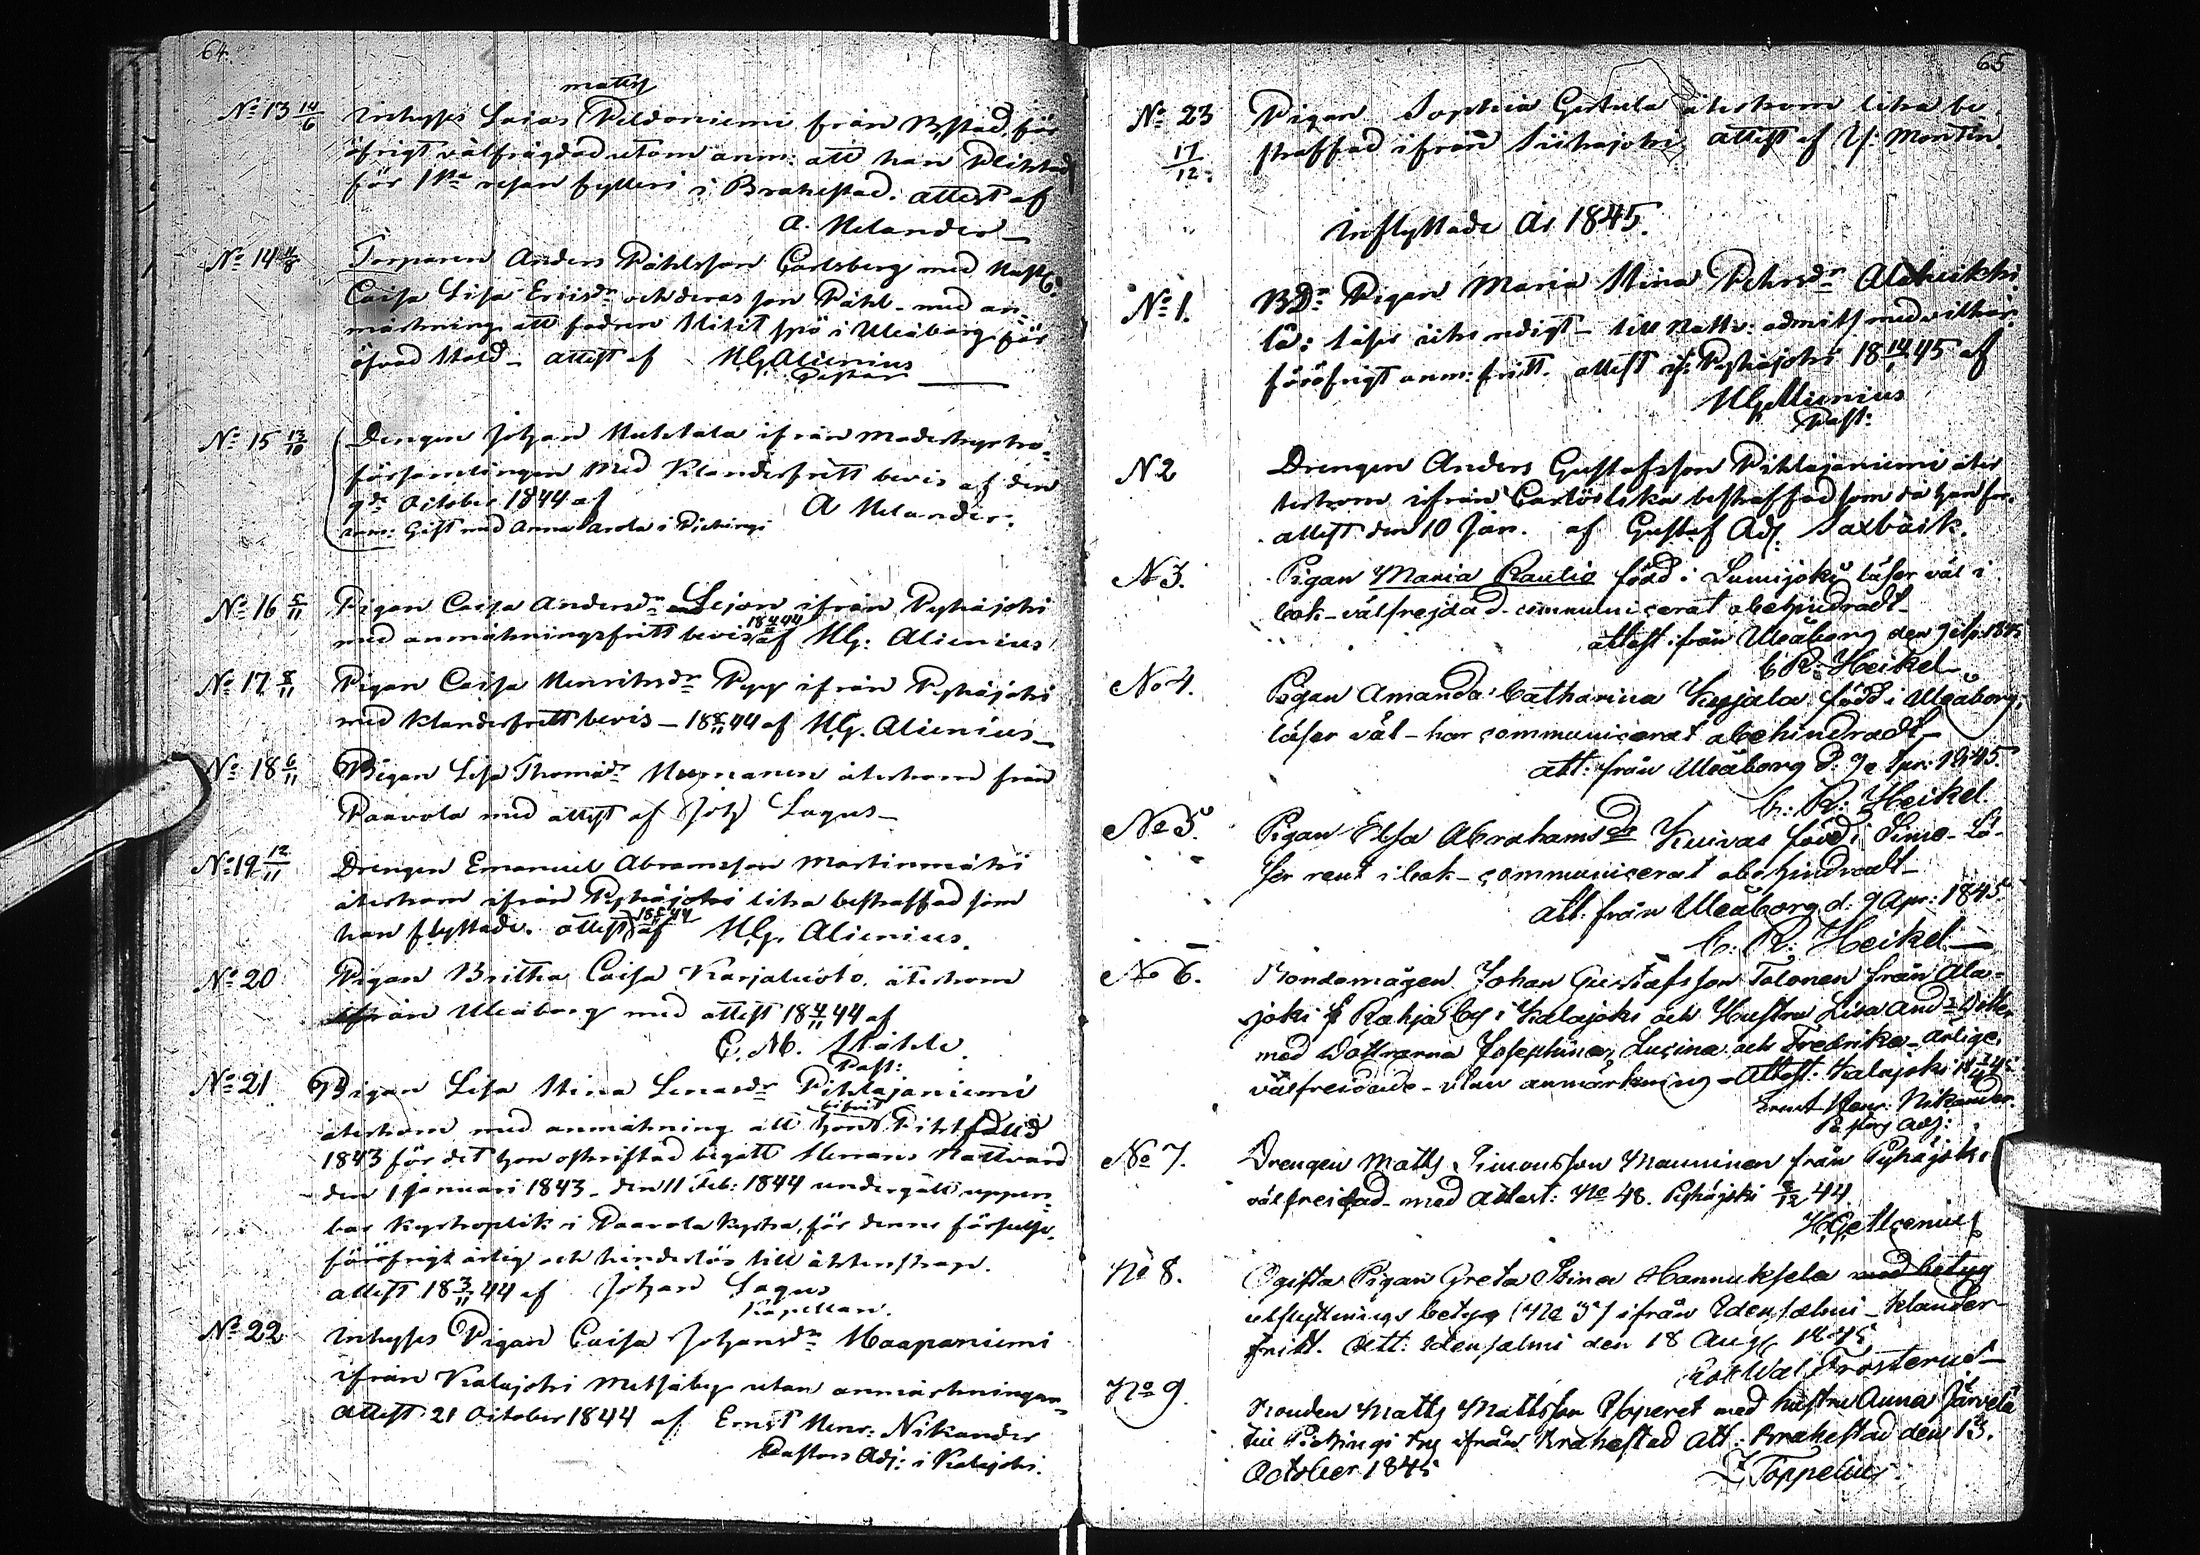 64.
matts
No 13 14/6 Inhyses Caisas Peldoniemi från B:stad, för
öfrigt välfrägdad utom anm: att han Pliktad
för 1sta resan fylleri i Brahestad. attest af
A. Melander
No 14 4/8 Torparen Anders Påhlsson Carlsberg med Hust.
Caisa Lisa Ericsdr och deras son Påhl - med an-
märkning att fadren slitit spö i Uleåborg för
öfvad stöld - attest af H.G. Alcenius
Pastor
No 15 13/10 Drengen Johan Huhtala ifrån Moderkyrko-
församlingen med Klanderfritt bevis af den
9de October 1844 af A Melander.
anm: Gift med Anna i Piehingi
No 16 5/11 Pigan Caisa Andersdr Lejon ifrån Pyhäjoki
med anmärkningsfritt bevis 18 4/11 44 af H.G. Alcenius
No 17 8/11 Pigan Caisa Henriksdr Pyy ifrån Pyhäjoki
med Klanderfritt bevis - 18 44 af H.G. Alcenius
No 18 6/11 Pigan Lisa Thomasdr återkom från
Paavola med attest af Joh Lagus
No 19 12/11 Drengen Emanuel Abramsson Martinmäki
återkom ifrån Pyhäjoki lika bestraffad som
han flyttade. attest 18 44 af H.G. Alcenius.
No 20 Pigan Britha Caisa Karjaluoto. återkom
ifrån Uleåborg med attest 18 4/11 44 af
C. M. Ståhle
Past:
No 21 Pigan Lisa Stina Pihlajaniemi
återkom med anmärkning att hon blivit Pliktfäld
1843 för det hon oskriftad begått Herrans Nattvard
den 1 Januari 1843 - den 11 Feb: 1844 undergått uppen-
bar kyrkoplikt i Paavola kyrka, för denne förseelse,
föröfrigt ärlig och hinderlös till äktenskap.
attest 18 3/11 44 af Johan Lagus
Kapellan.
No 22 Inhyses Pigan Caisa Johansdr Haapaniemi
ifrån Kalajoki Metsäby utan anmärkningar
attest 21 October 1844 af Ernst Henr: Nikander
Pastors Adj: i Kalajoki.
65
No 23 17/12. Pigan Sophia Gertula återkom lika be
straffad ifrån Siikajoki attest af Y. Montin.
Inflyttade År 1845.
No 1. BDr Pigan Maria Stina Pehrsdr Alahuikku
la: läser utvendigt - till Nattv: admitt med vilkår:
föröfrigt anm: fritt. attest if: Pyhäjoki 18 14/1 45 af
H.G. Alcenius
Past:
N 2 Drengen Anders Gustafsson Pihlajaniemi åter
återkom ifrån Carlö lika bestraffad som då han for.
attest den 10 Jan. af Gustaf Adj. Saxbäck.
N 3. Pigan Maria Raulio född i Lumijoki läser väl i
bok - välfrejdad - communicerat obehindradt -
attest ifrån Uleåborg den 9 Apr: 1845
C. R: Heikel
No 4. Pigan Amanda Catharina Kypjala född i Uleåborg;
läser väl - har communicerat obehindradt -
att: från Uleåborg d: 9 Apr: 1845
C: R: Heikel
No 5. Pigan Elsa Abrahamsdr Kuivas född i Simo - lä-
ser rent i bok - communicerat obehindradt -
att: från Uleåborg d: 9 Apr: 1845
C: R: Heikel
No 6. Bondemågen Johan Gustafsson Tolonen från Ala-
joki Rahja by i Kalajoki och Hustru Lisa And:s Dotter
med Döttrarna Josephina, Lucina och Fredrika - ärlige,
välfreidade - utan anmärkning - Attest: Kalajoki 18 45
Ernst Henr: Nikander.
Pastors Adj:
No 7. Drengen Matts Simonsson Manninen från Pyhäjoki
välfreidad - med Attest: No 48. Pyhäjoki 8/12 44.
H.G. Alcenius
No 8. Ogifta Pigan Greta Stina Hannuksela med betyg
utflyttnings betyg (No 5) ifrån Idensalmi - Klander-
fritt. Att: Idensalmi den 18 Aug. 1845
Frosterus
No 9. Bonden Matts Mattsson Yoperet med hustru Anna Järvelä
till Piehingi by ifrån Brahestad Att: Brahestad den 13.
October 1845 Z Toppelius